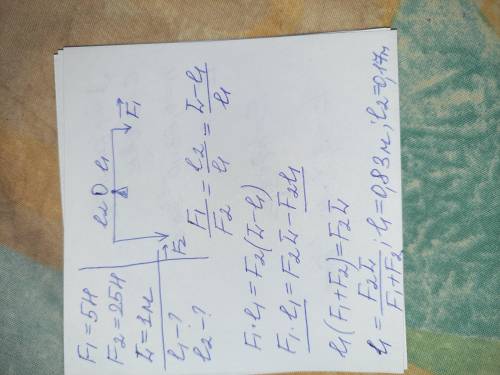 F₁ = 5Н
F₂ = 25Н
L = 1м
l₁ - ?
l₂ - ?
l₂ O l₁
F₁
F₂
F₁/F₂ = l₂/l₁ = (L - l₁)/l₁
F₁ · l₁ = F₂(L - l₁)
F₁ · l₁ = F₂L - F₂l₁
l₁(F₁ + F₂) = F₂L
l₁ = F₂L/(F₁ + F₂) ; l₁ = 0,83м ; l₂ = 0,17м